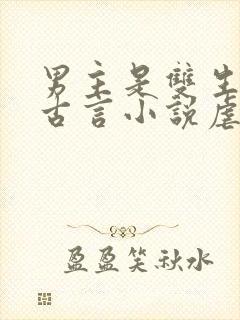 男主是雙生
古言小說虐
盈盈笑秋水